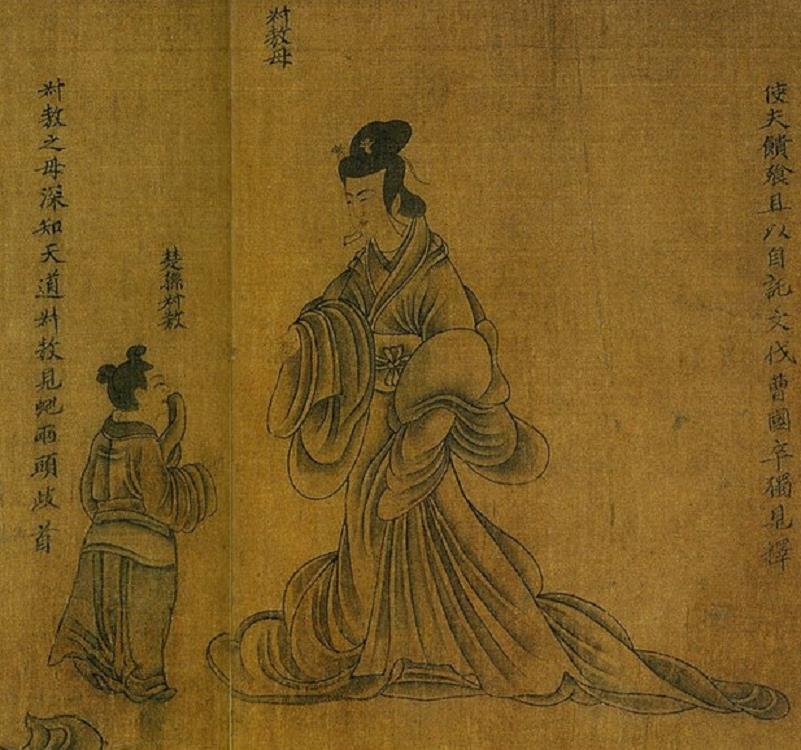 使夫饋飱且以自託文伐曹國卒獨見釋
叔敖母
楚孫叔敖
叔敖之母深知天道叔敖見虵兩頭歧首